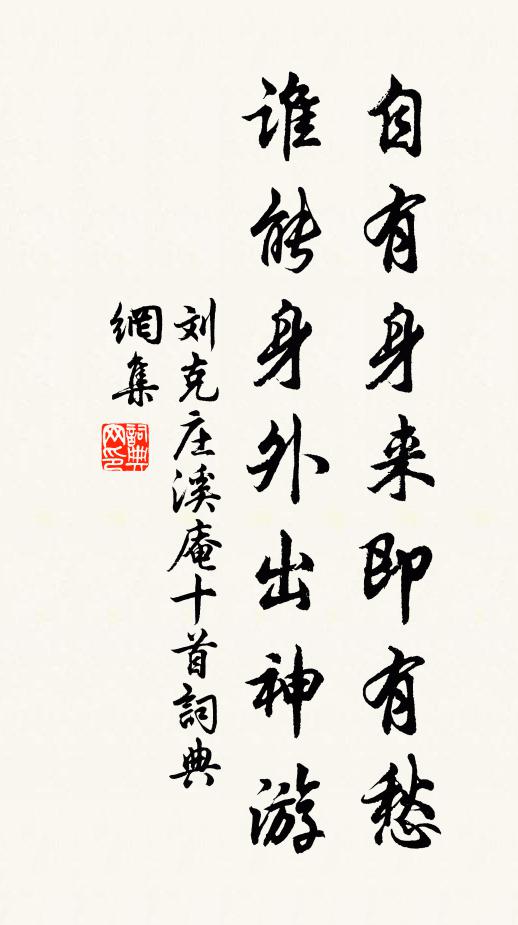 自有身来即有愁
谁能身外出神游
刘克庄溪庵十首詞典
網集
詞典网印